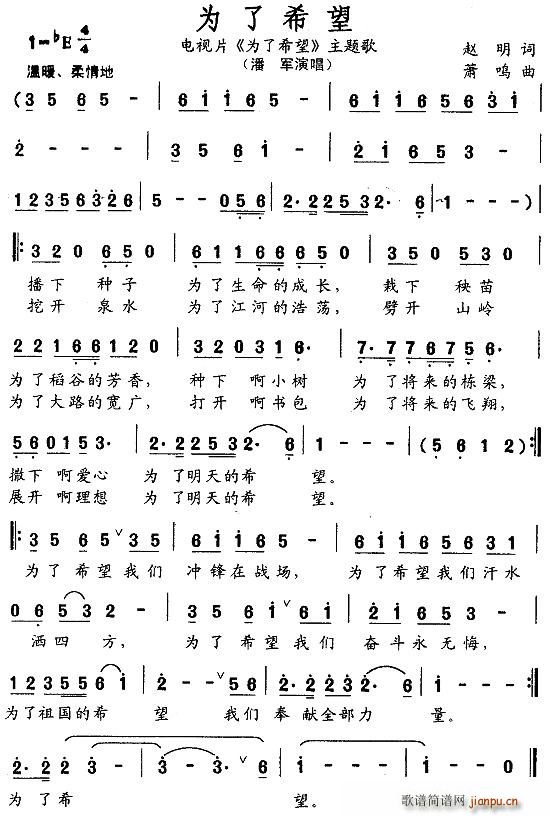 为了希望
1=♭E 4/4
电视片《为了希望》主题歌
赵明词
（潘 军演唱）
萧鸣曲
温暖、柔情地
(3 5 6 5 | 6 1 1 6 5 | 6 1 1 6 5 6 3 1 |
2 - - - | 3 5 6 1 - | 2 1 6 5 - |
1 2 3 5 6 3 2 6 | 5 - - 0 5 6 | 2· 2 2 5 3 2· 6 | 1 - - - )
‖: 3 2 0 6 5 0 | 6 1 1 6 6 6 5 0 | 3 5 0 5 3 0 |
播下 种子 为了生命的成长， 栽下 秧苗
挖开 泉水 为了江河的浩荡， 劈开 山岭
2 2 1 6 6 1 2 0 | 3 2 0 3 1 6· | 7· 7 7 6 7 5 6· |
为了稻谷的芳香， 种下 啊小树 为 了将来的栋梁，
为了大路的宽广， 打开 啊书包 为 了将来的飞翔，
5 6 0 1 5 3· | 2· 2 2 5 3 2· 6 | 1 - - - | (5 6 1 2 ) :‖
撒下 啊爱心 为 了明天的希 望。
展开 啊理想 为 了明天的希 望。
‖: 3 5 6 5 ∨ | 6 1 1 6 5 | 6 1 1 6 5 6 3 1 |
为了希望我们 冲锋在战场， 为了希望我们汗水
0 6 5 3 2 - | 3 5 6 1 ∨ | 2 1 6 5 3 - |
洒四 方， 为了 希望我们 奋斗永无悔，
1 2 3 5 5 6 1 | 2 - - ∨ 5 6 | 2· 2 2 3 2 2· 6 | 1 - - - :‖
为了祖国的希 望 我们 奉 献全部力 量。
2· 2 2 2 3 - | 3 - 3· ∨ 6 | 1 - - - | 1 0 0 0 ‖
为 了希 望。
歌谱简谱网
jianpu.cn